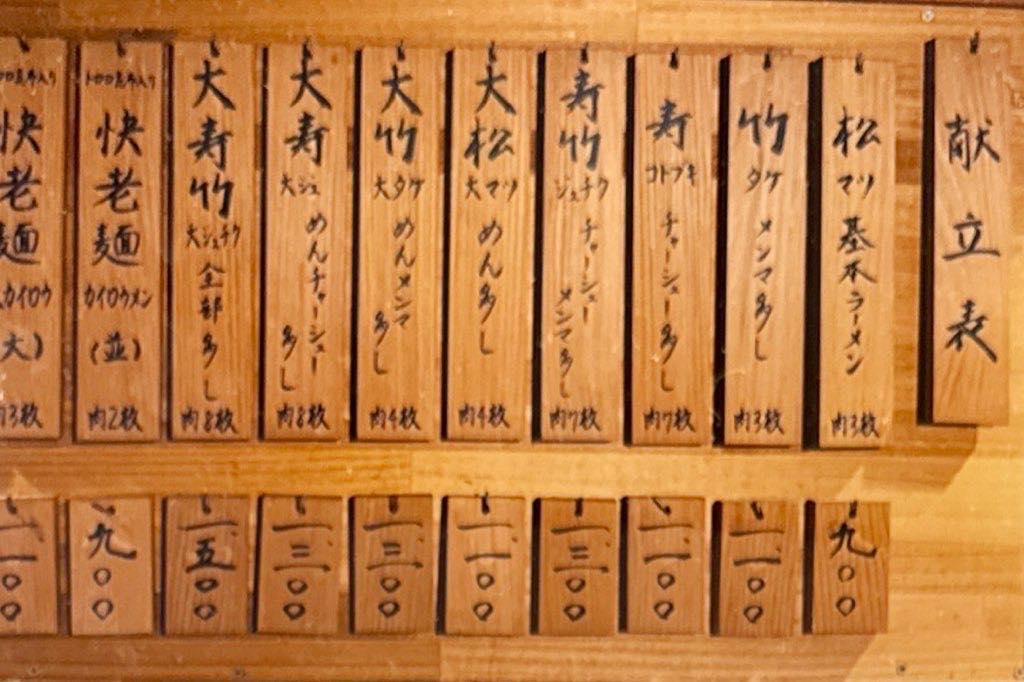 献立表
松
マツ
基本ラーメン
肉3枚
竹
タケ
メンマ多し
肉3枚
寿
コトブキ
チャーシュー多し
肉7枚
寿竹
ジュチク
チャーシュー
メンマ多し
肉7枚
大松
大マツ
めん多し
肉4枚
大竹
大タケ
めんメンマ
多し
肉4枚
大寿
大ジュ
めんチャーシュー
多し
肉8枚
大寿竹
大ジュチク
全部多し
肉8枚
トロロ昆布入り
快老麺
カイロウメン
(並)
肉2枚
ロロ昆布入り
快老麺
カイロウ
大)
肉3枚
九〇〇
一一〇〇
一一〇〇
一三〇〇
一一〇〇
一三〇〇
一三〇〇
一五〇〇
九〇〇
一一〇〇